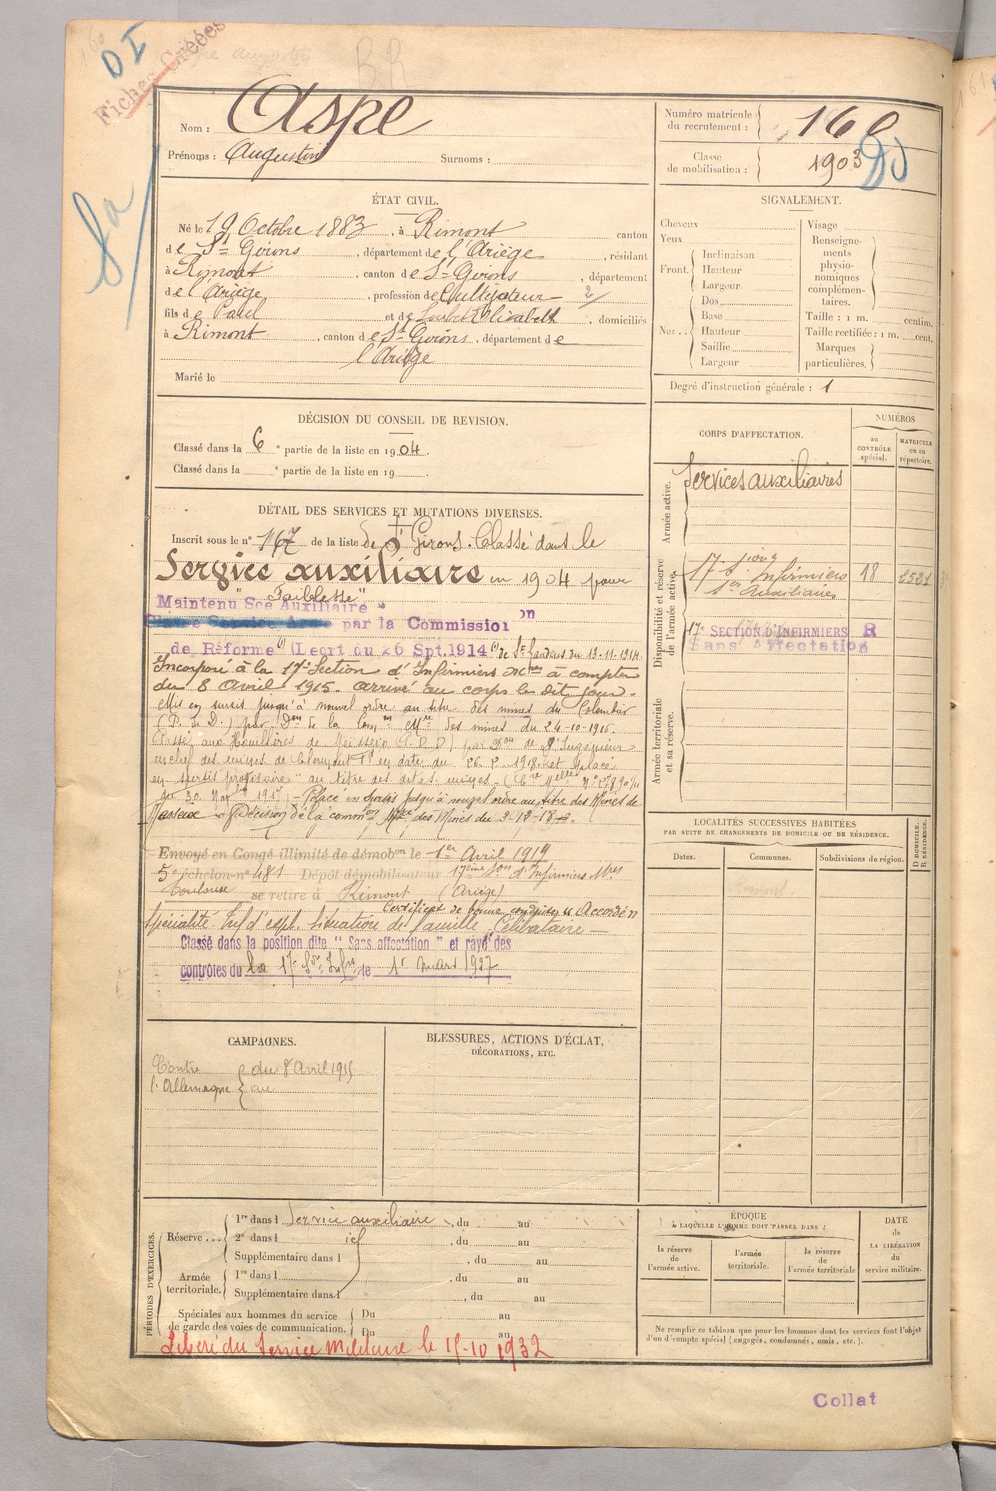 DI
Fiches Créées
BR
Sa
Nom : Aspe
Prénoms : Augustin Surnoms :
Numéro matricule du recrutement : 160
Classe de mobilisation : 1903
ÉTAT CIVIL.
Né le 19 Octobre 1883, à Rimont canton
de St Girons, département de l'Ariège, résidant
à Rimont, canton de St Girons, département
de l'Ariège, profession de Cultivateur
fils de Paul et de Loubet Elisabeth, domiciliés
à Rimont, canton de St Girons, département de
l'Ariège
Marié le
SIGNALEMENT.
Cheveux
Yeux
Front. Inclinaison
Hauteur
Largeur
Nez .. Dos
Base
Hauteur
Saillie
Largeur
Visage
Renseigne-
ments
physio-
nomiques
complémen-
taires.
Taille : 1 m. centim.
Taille rectifiée : 1 m. cent.
Marques
particulières.
Degré d'instruction générale : 1
DÉCISION DU CONSEIL DE REVISION.
Classé dans la 6e partie de la liste en 1904.
Classé dans la e partie de la liste en 19
CORPS D'AFFECTATION.
NUMÉROS
au CONTRÔLE spécial.
MATRICULE ou au répertoire.
Armée active.
Services auxiliaires
Disponibilité et réserve de l'armée active.
17e Son
Infirmiers 18 2521
Ser Auxiliaires
17e SECTION D'INFIRMIERS R
Sans Affectation
Armée territoriale et sa réserve.
DÉTAIL DES SERVICES ET MUTATIONS DIVERSES.
Inscrit sous le n° 167 de la liste de St Girons. Classé dans le
Service auxiliaire en 1904 pour
"Faiblesse"
Maintenu Sce Auxiliaire
par la Commission
de Réforme (Décret du 26 Spt. 1914) de St Gaudens du 13-11-1914.
Incorporé à la 17e Section d'Infirmiers Mres à compter
du 8 Avril 1915. arrivé au corps le dit jour.
en sursis jusqu'à nouvel ordre au titre des mines du
par Don de la Comon des mines du 24-10-1916.
Passé aux Houillères de Messeix par Don de l'Ingénieur
en chef des mines de Clermont Fd en date du 26. 2. 1918 et placé
en sursis au titre des dites mines.
du 30 1917. Placé en sursis jusqu'à nouvel ordre au titre des Mines de
Messeix Décision de la common Mre des Mines du 3-12-18.
Envoyé en Congé illimité de démobon le 1er Avril 1919
5e échelon n° 481 Dépôt démobilisateur 17ème Son d'Infirmiers Mres
Toulouse se retire à Rimont (Ariège)
Certificat de bonne conduite "Accordé"
Spécialité Situation de famille Célibataire
Classé dans la position dite "Sans affectation" et rayé des
contrôles du la 17e Son Infirs le 1r mars 1927
LOCALITÉS SUCCESSIVES HABITÉES
PAR SUITE DE CHANGEMENTS DE DOMICILE OU DE RÉSIDENCE.
Dates. Communes. Subdivisions de région. D DOMICILE. R RÉSIDENCE.
Rimont.
CAMPAGNES.
Contre l'Allemagne
du 8 Avril 1915
au
BLESSURES, ACTIONS D'ÉCLAT,
DÉCORATIONS, ETC.
PÉRIODES D'EXERCICES.
Réserve ...
1re dans l Service auxiliaire, du au
2e dans l id, du au
Supplémentaire dans l, du au
Armée territoriale.
1re dans l, du au
Supplémentaire dans l, du au
Spéciales aux hommes du service de garde des voies de communication.
Du au
Du au
Libéré du Service Militaire le 15-10 1932
ÉPOQUE
À LAQUELLE L'HOMME DOIT PASSER DANS :
la réserve de l'armée active.
l'armée territoriale.
la réserve de l'armée territoriale
DATE de LA LIBÉRATION du service militaire.
Ne remplir ce tableau que pour les hommes dont les services font l'objet
d'un décompte spécial (engagés, condamnés, omis, etc.).
Collat